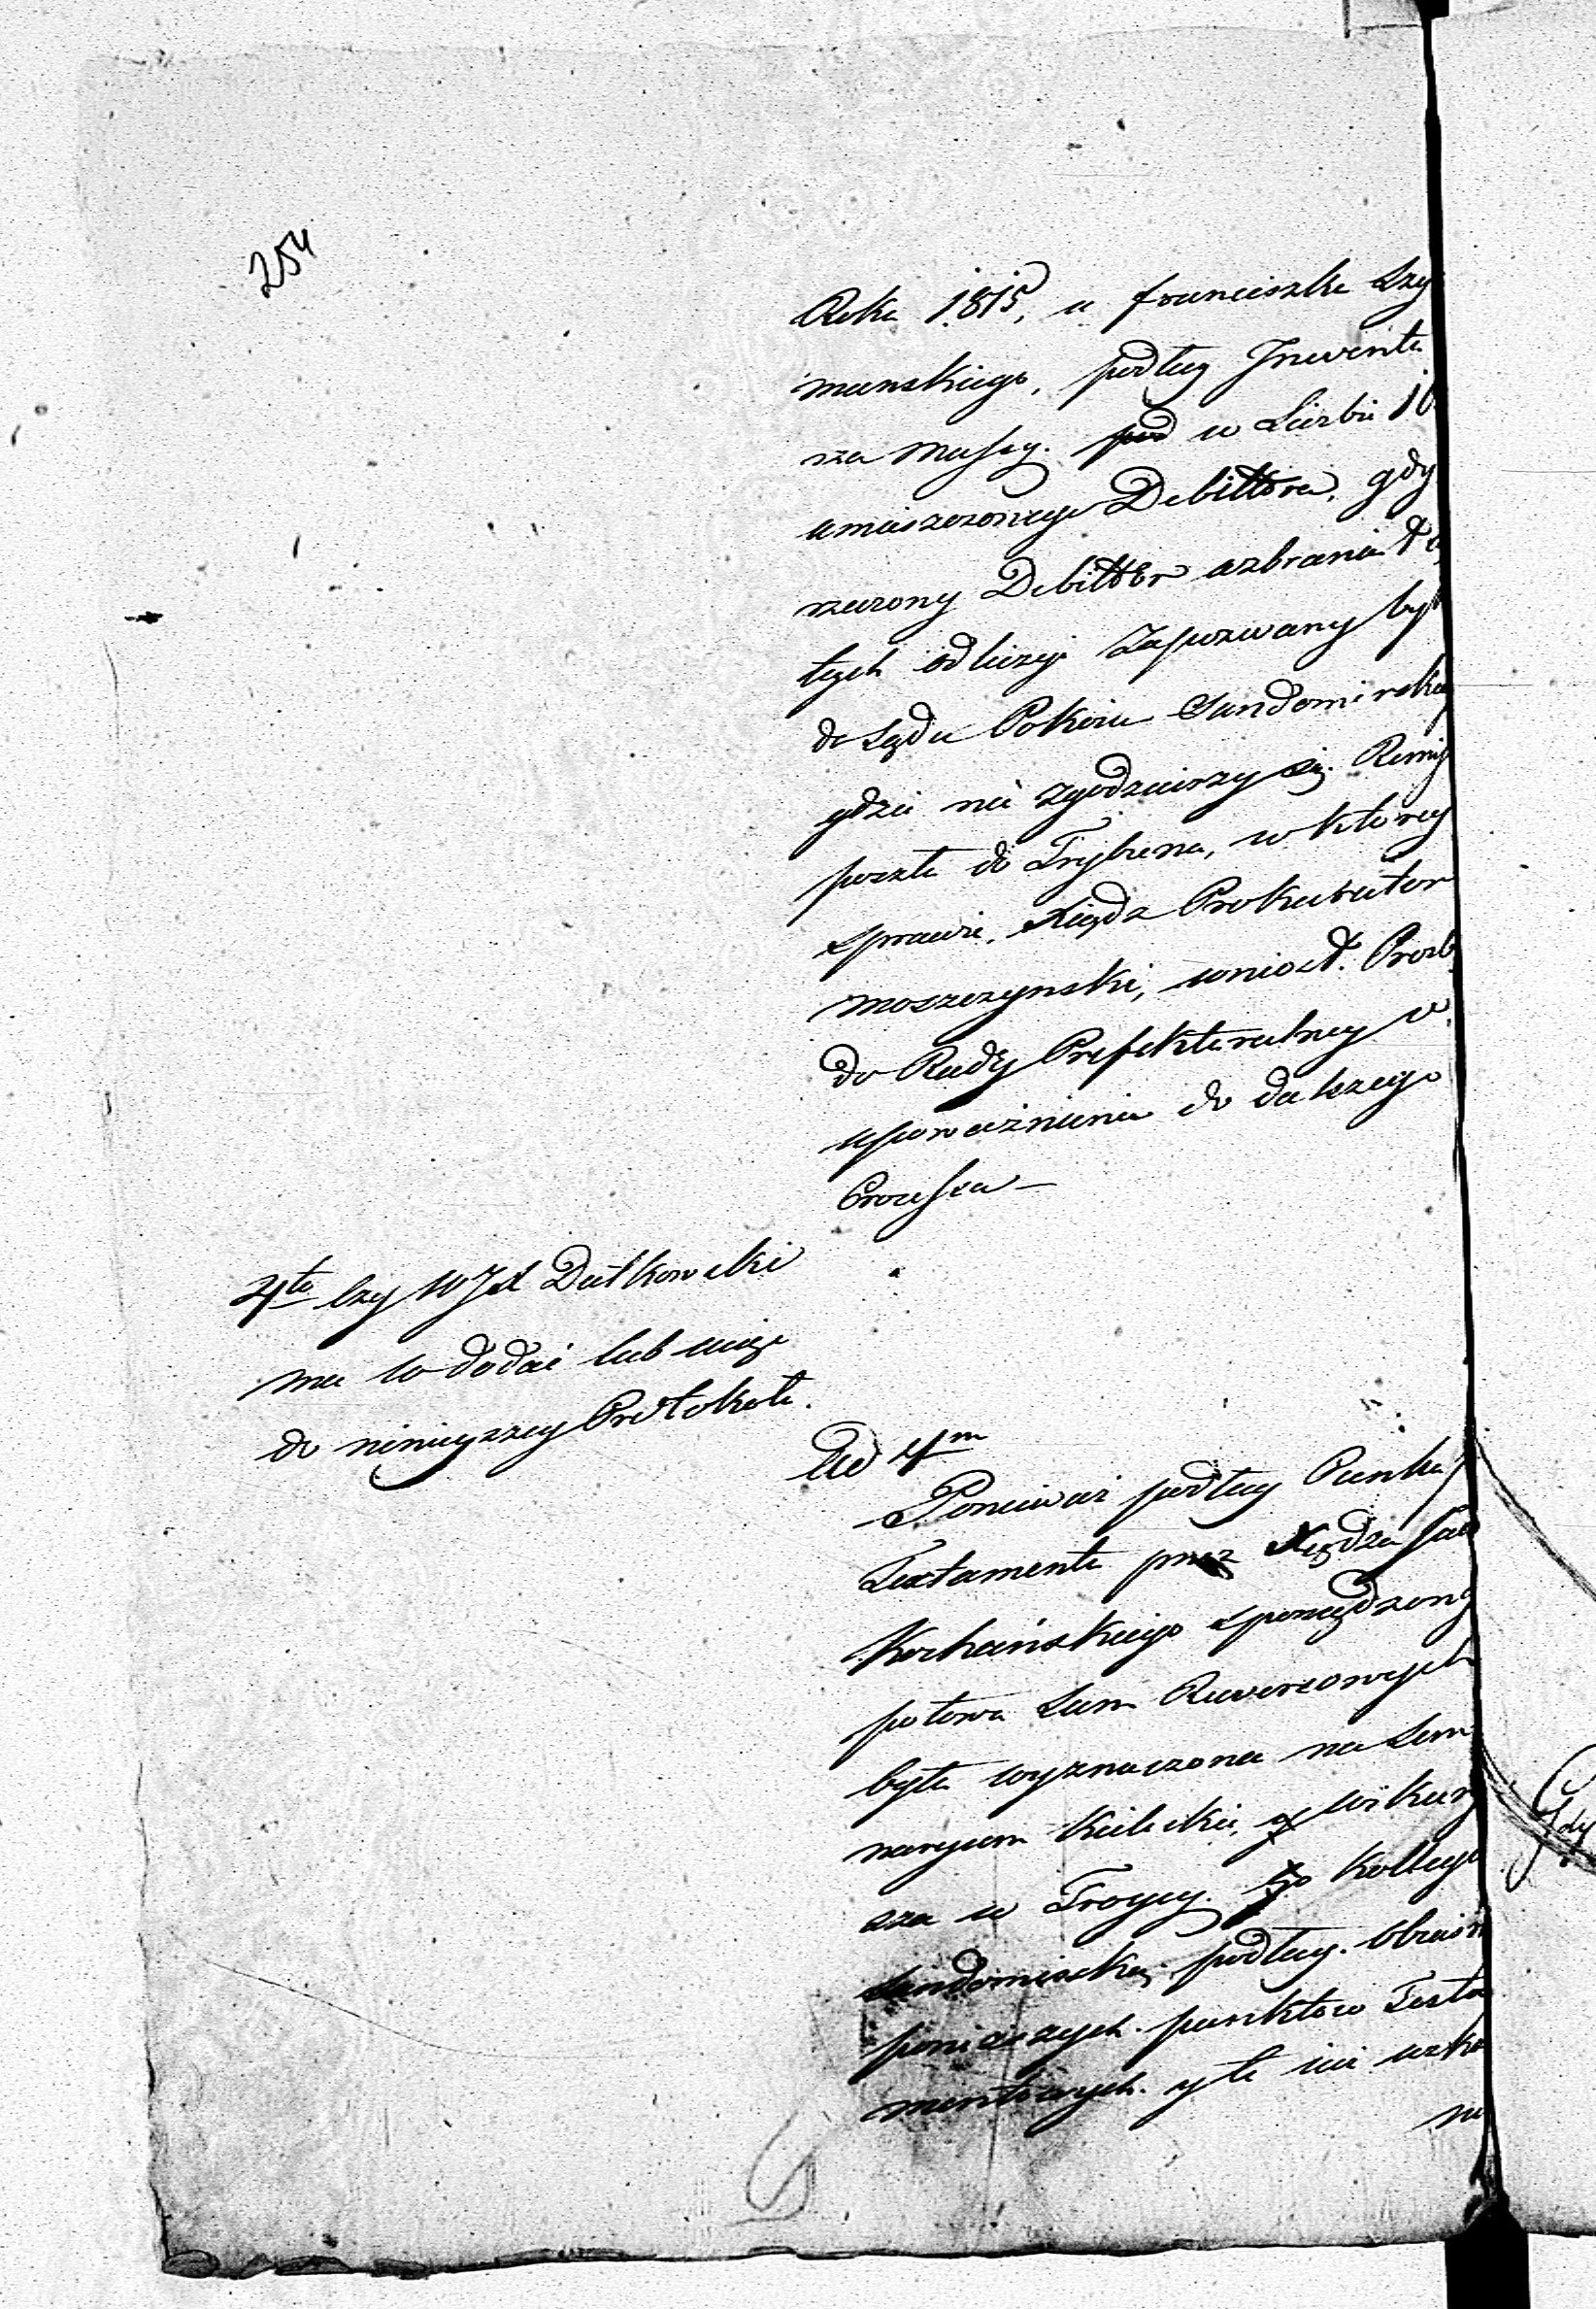 254
Roku 1815, u Franciszka Szy
manskiego, podług Inwenta
rza Massy. pod w Liczbie 10
umieszczonego Debittora, gdy
rzeczony Debittor wzbraniał
tych odliczyć Zapozwany był
do Sądu Pokoiu Sandomirskie
gdzie nie zgodziwszy się. Remis
poszła do Trybuna, w którey
sprawie, Xiądz Prokurator
Moszczynski, wniosł. Prozb
do Rady Prefekturalney o
upoważnienie do dalszego
Processu —
4to czy WJX Dutkowski
ma co dodać lub uiąć
do ninieyszey Protokołu.
Ad 4m
Ponieważ podług Punktu
Testamentu przez Xiędza
Kochańskiego sporządzony
połowa Sum Rewersowych
była wyznaczona na Semi
naryum Kieleckie, y wikary
sza w Troycy. Kollegi
Sandomirską podług. obiasn
ponizszych. punktow Testa
mentowych. y ta
Gdy